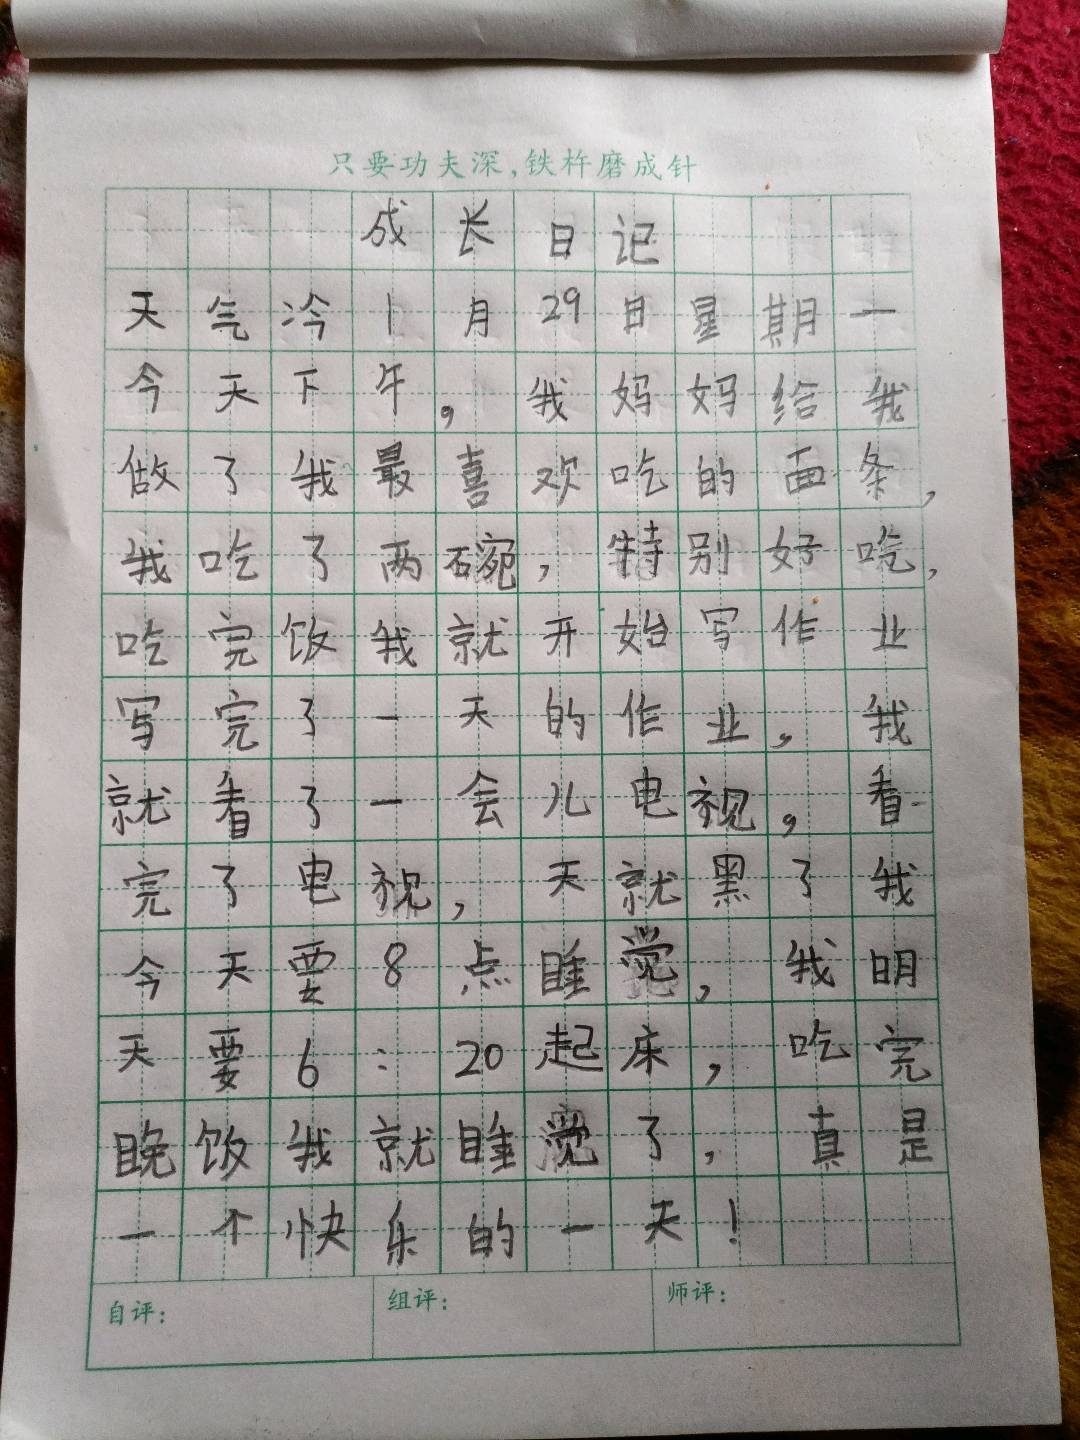 只要功夫深,铁杵磨成针
成长日记
天气冷1月29日星期一
今天下午,我妈妈给我
做了我最喜欢吃的面条,
我吃了两碗,特别好吃,
吃完饭我就开始写作业
写完了一天的作业,我
就看了一会儿电视,看
完了电视,天就黑了我
今天要8点睡觉,我明
天要6:20起床,吃完
晚饭我就睡觉了,真是
一个快乐的一天!
自评: 组评: 师评: